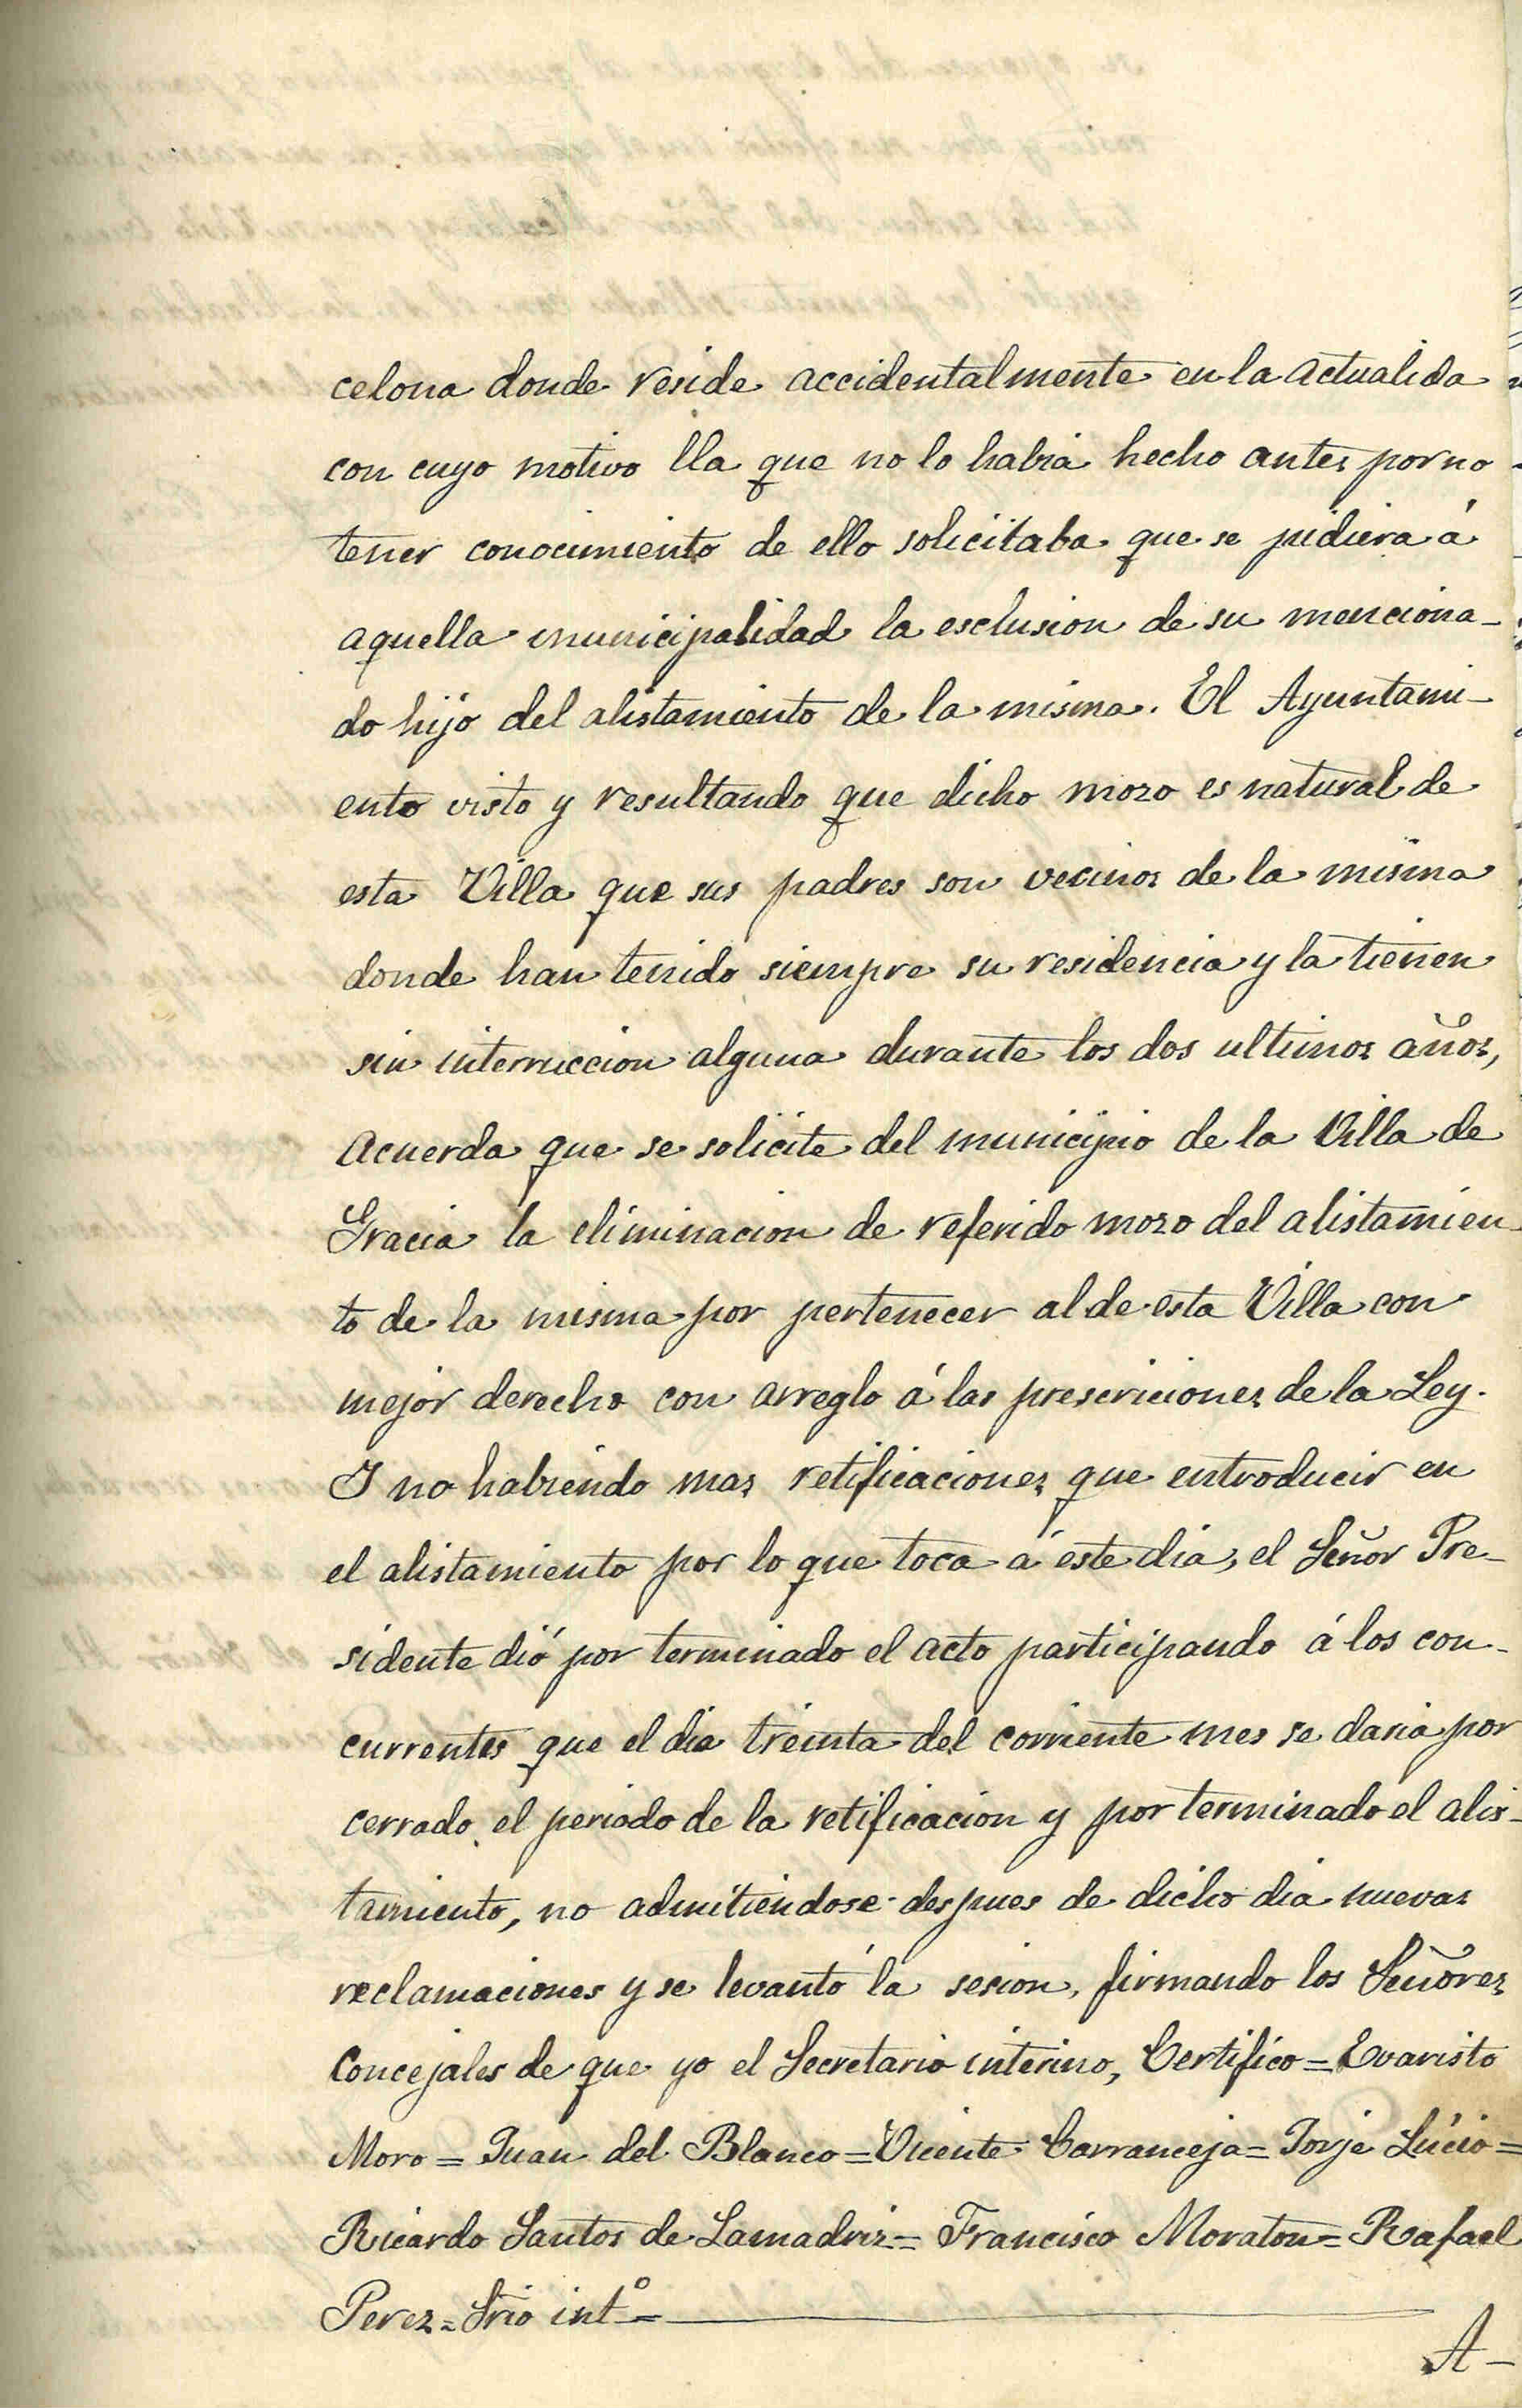 celona donde reside accidentalmente en la actualida
con cuyo motivo lla que no lo habia hecho antes por no
tener conocimiento de ello solicitaba que se pidiera á
aquella municipalidad la esclusion de su menciona-
do hijo del alistamiento de la misma. El Ayuntami-
ento visto y resultando que dicho mozo es natural de
esta Villa que sus padres son vecinos de la misma
donde han tenido siempre su residencia y la tienen
sin interruccion alguna durante los dos ultimos años,
acuerda que se solicite del municipio de la Villa de
Gracia la eliminacion de referido mozo del alistamien
to de la misma por pertenecer al de esta Villa con
mejor derecho con arreglo á las prescriciones de la Ley.
Y no habiendo mas retificaciones que introducir en
el alistamiento por lo que toca á este dia, el Señor Pre-
sidente dió por terminado el acto participando á los con-
currentes que el dia treinta del corriente mes se daria por
cerrado el periodo de la retificacion y por terminado el alis-
tamiento, no admitiendose despues de dicho dia nuevas
reclamaciones y se levantó la sesion, firmando los Señores
Concejales de que yo el Secretario interino, Certifico = Evaristo
Moro = Juan del Blanco = Vicente Carranceja = Jorje Lúcio =
Ricardo Santos de Lamadriz = Francisco Moraton = Rafael
Perez = Srio intº =
A-